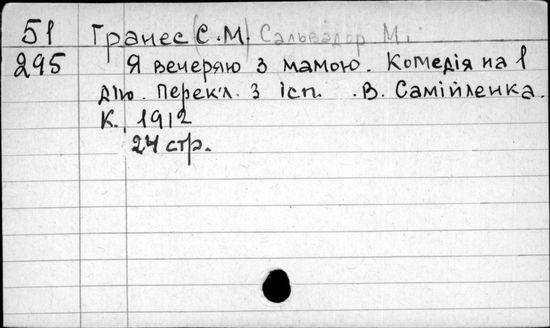 51 Гранес (С. М) Сальвадор М.
295 Я вечеряю з мамою. Комедія на 1
дію. Перекл. з ісп. В. Самійленка.
К., 1912
24 стр.